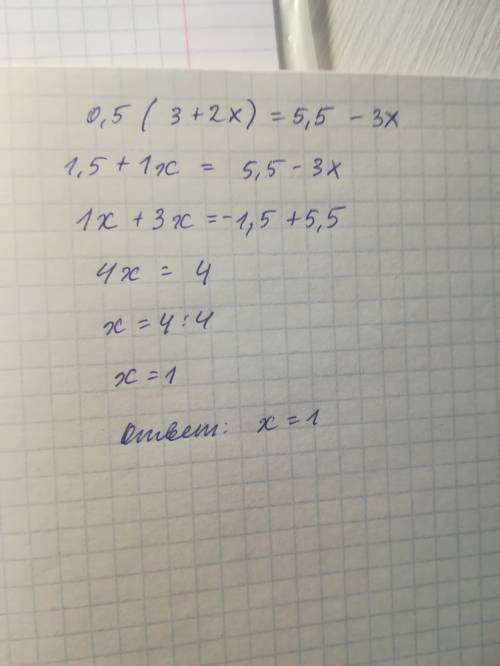 0,5 ( 3 + 2x ) = 5,5 - 3x
1,5 + 1x = 5,5 - 3x
1x + 3x = -1,5 + 5,5
4x = 4
x = 4 : 4
x = 1
Ответ: x = 1